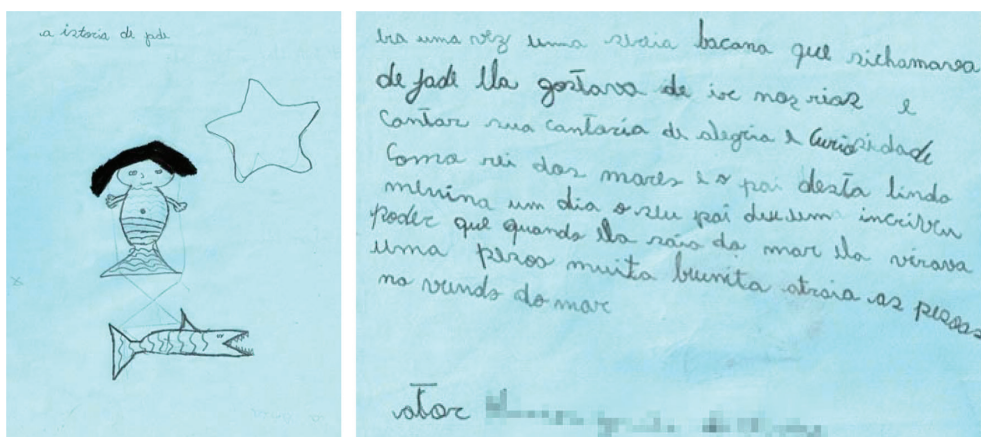 a istoria de jade
Era uma vez uma sereia bacana que sichamava
de jade Ela gostava de ir nos rios e
Cantar sua cantoria de alegria e Curiosidade
Como rei dos mares e o pai desta linda
menina um dia o seu pai deu um incriveu
poder que quando Ela saia do mar Ela virava
uma pesoa muita brunita atraia as pesoas
no vundo do mar
ator